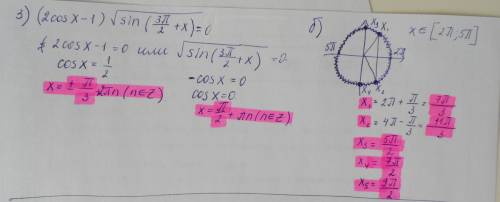 3) (2cosx-1) √sin(3π/2+x)=0
2cosx-1=0 или √sin(3π/2+x)=0.
cosx=1/2
-cosx=0
cosx=0
x=±π/3 2πn(n∈Z)
x=π/2+πn(n∈Z)
б)
x∈[2π;5π]
x₃ x₁
5π 2π
x₄ x₂
x₁=2π+π/3=7π/3
x₂=4π-π/3=11π/3
x₃=5π/2
x₄=7π/2
x₅=9π/2